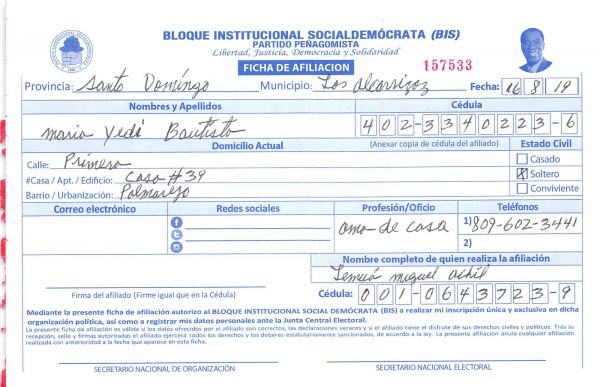 BLOQUE INSTITUCIONAL SOCIALDEMÓCRATA (BIS)
PARTIDO PEÑAGOMISTA
Libertad, Justicia, Democracia y Solidaridad
FICHA DE AFILIACION 157533
Provincia: Santo Domingo Municipio: Los Alcarrizoz Fecha: 16 8 19
Nombres y Apellidos Cédula
Maria Yedi Bautista 402-3340223-6
Domicilio Actual (Anexar copia de cédula del afiliado) Estado Civil
Calle: Primera Casado
#Casa / Apt. / Edificio: Casa #39 Soltero
Barrio / Urbanización: Palmarejo Conviviente
Correo electrónico Redes sociales Profesión/Oficio Teléfonos
ama de casa 1) 809-602-3441
2)
Nombre completo de quien realiza la afiliación
miguel
Firma del afiliado (Firme igual que en la Cédula) Cédula: 001-0643723-9
Mediante la presente ficha de afiliación autorizo al BLOQUE INSTITUCIONAL SOCIAL DEMÓCRATA (BIS) a realizar mi inscripción única y exclusiva en dicha
organización política, así como a registrar mis datos personales ante la Junta Central Electoral.
La presente ficha de afiliación es válida si los datos ofrecidos por el afiliado son correctos, las declaraciones veraces y si el afiliado tiene el disfrute de sus derechos civiles y políticos. Tras su
recepción, sello y firmas autorizadas el afiliado ejercerá todos los derechos y los deberes estatutariamente sancionados, de acuerdo a la ley. La presente afiliación anula cualquier afiliación
realizada con anterioridad a la fecha que aparece en esta ficha.
SECRETARIO NACIONAL DE ORGANIZACIÓN SECRETARIO NACIONAL ELECTORAL